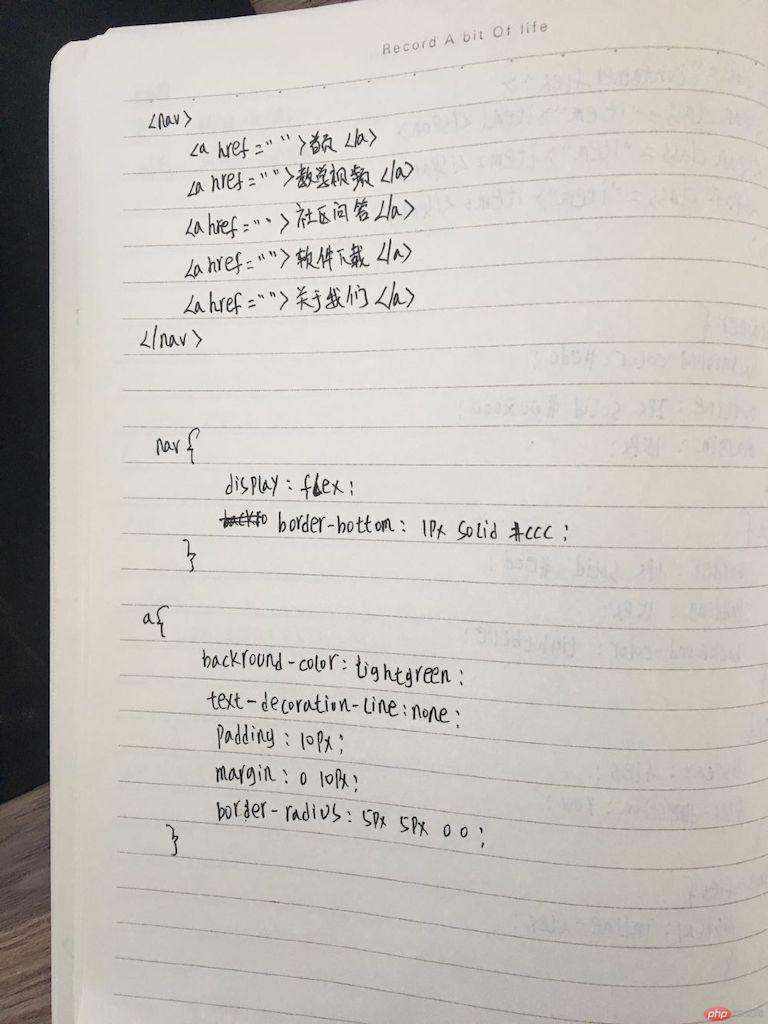 Record A bit Of life
<nav>
<a href="">首页</a>
<a href="">教学视频</a>
<a href="">社区问答</a>
<a href="">软件下载</a>
<a href="">关于我们</a>
</nav>
nav{
display: flex;
border-bottom: 1px solid #ccc;
}
a{
backround-color: lightgreen;
text-decoration-line: none;
padding: 10px;
margin: 0 10px;
border-radius: 5px 5px 0 0;
}
php